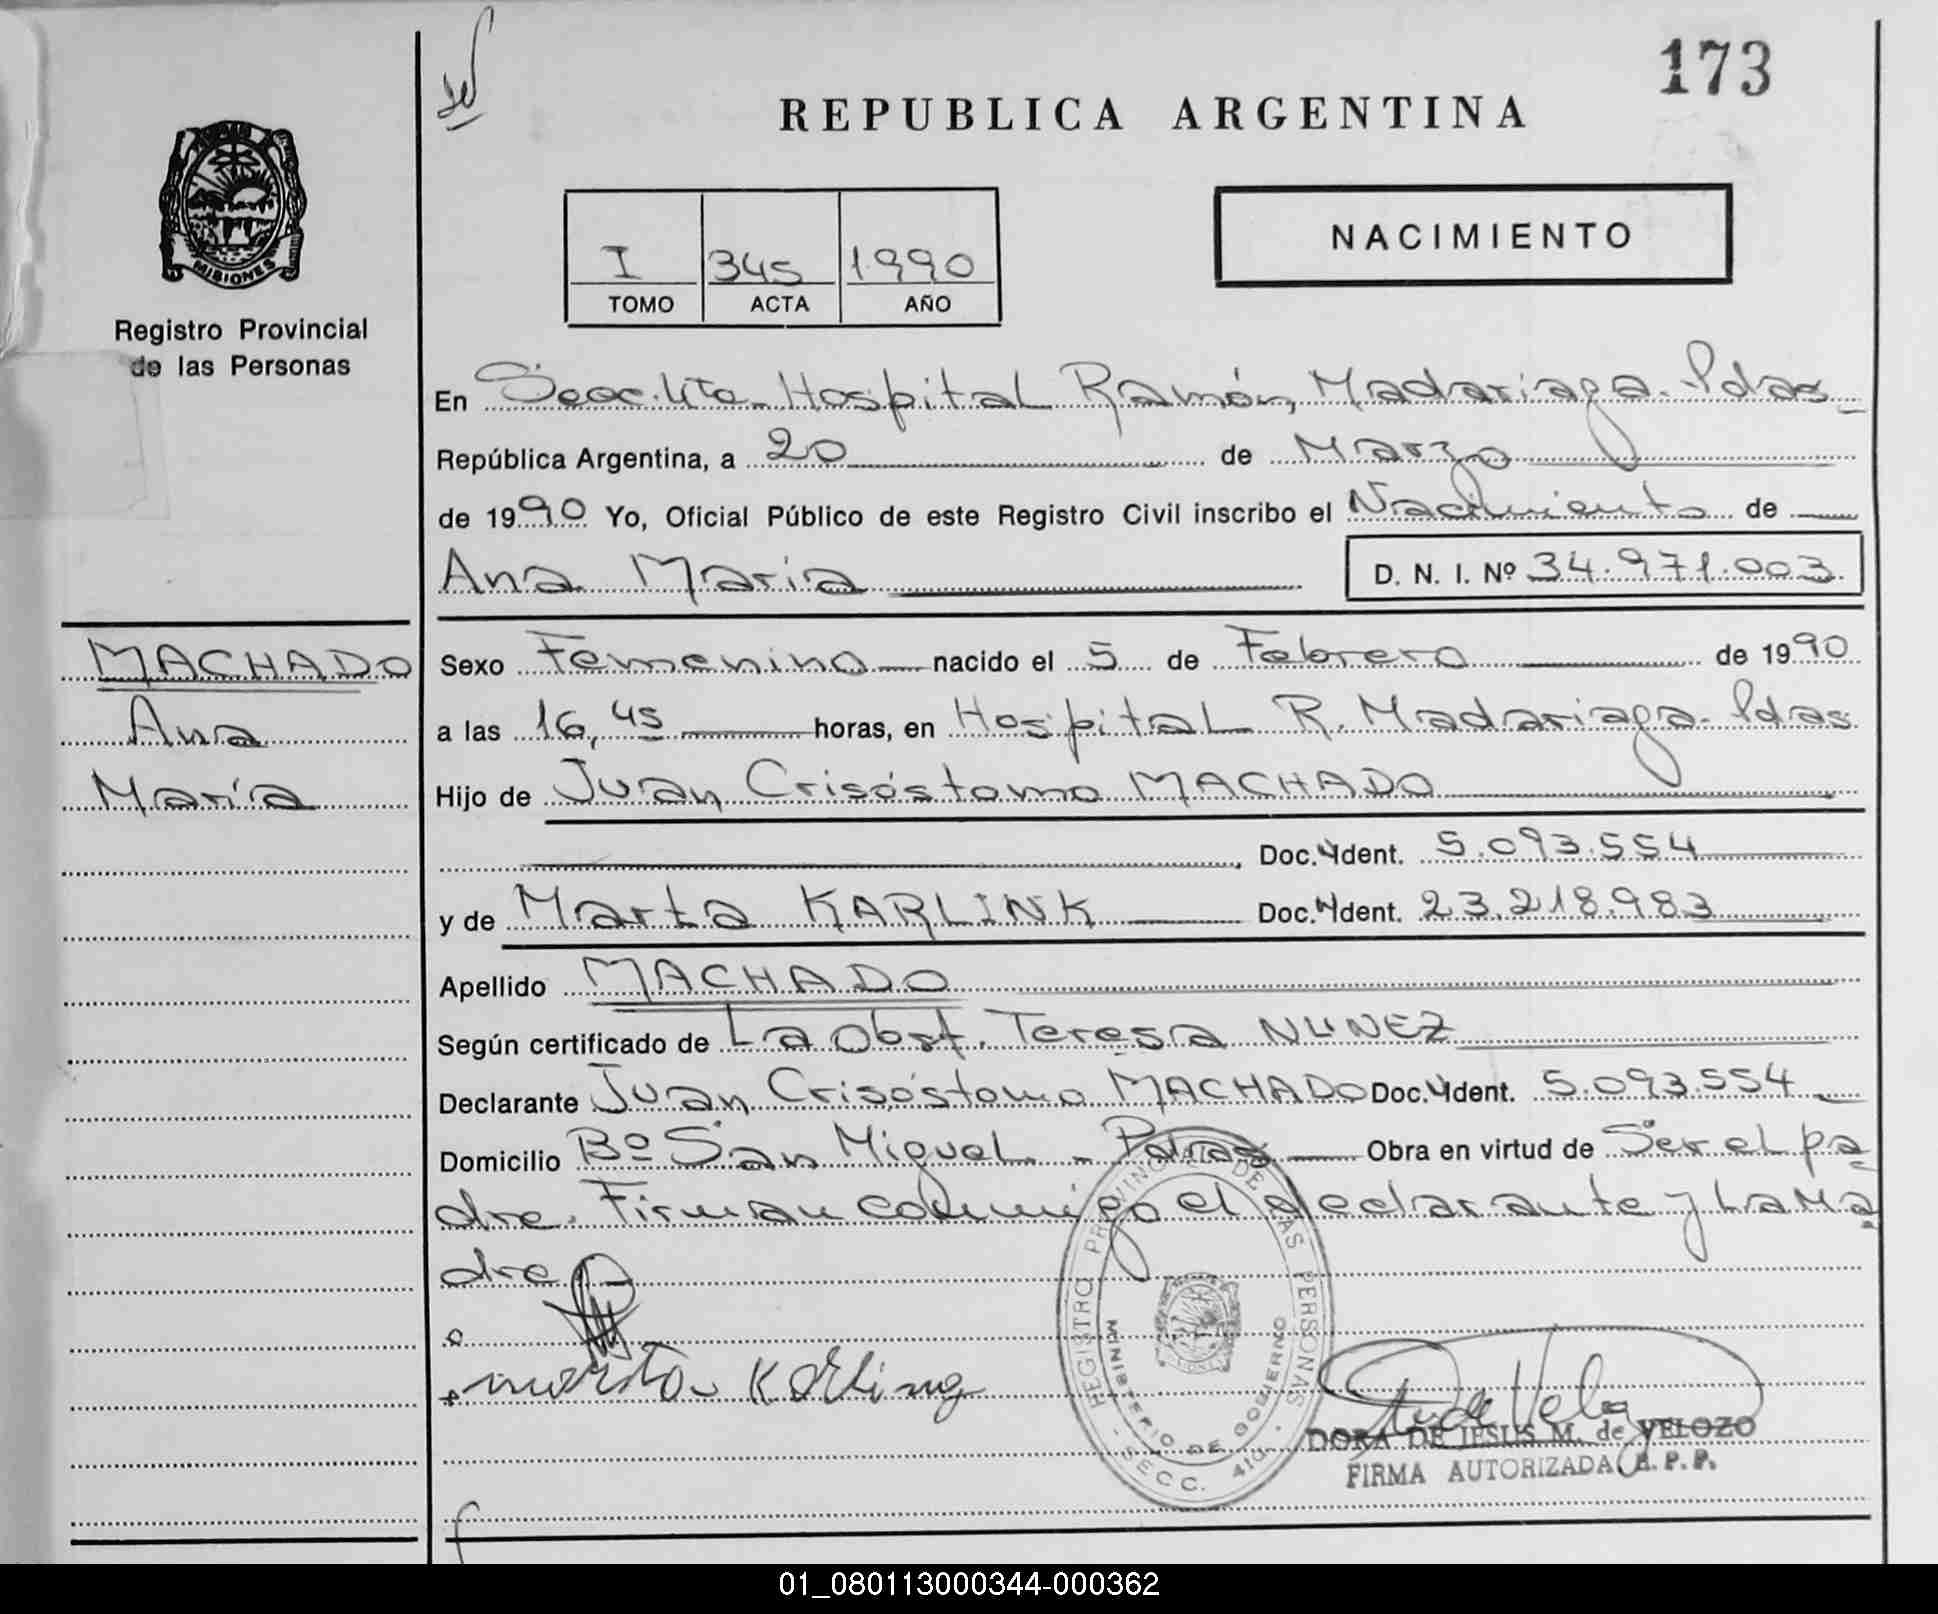 173
REPUBLICA ARGENTINA
MISIONES
Registro Provincial
de las Personas
I 345 1990
TOMO ACTA AÑO
NACIMIENTO
En Secc. 4ta. Hospital Ramón Madariaga. Pdas
República Argentina, a 20 de Marzo
de 1990 Yo, Oficial Público de este Registro Civil inscribo el Nacimiento de
Ana María
D. N. I. Nº 34.971.003
MACHADO
Ana
María
Sexo Femenino nacido el 5 de Febrero de 1990
a las 16,45 horas, en Hospital R. Madariaga. Pdas
Hijo de Juan Crisóstomo MACHADO
Doc. Ident. 5.093.554
y de Marta KARLINK Doc. Ident. 23.218.983
Apellido MACHADO
Según certificado de La Obst. Teresa NUNEZ
Declarante Juan Crisóstomo MACHADO Doc. Ident. 5.093.554
Domicilio Bº San Miguel. - Pdas Obra en virtud de Ser el pa
dre. Firman conmigo el declarante y La Ma
dre
marta Karling
REGISTRO PROVINCIAL DE LAS PERSONAS
MINISTERIO DE GOBIERNO
SECC. 4ta.
DORA DE JESUS M. de VELOZO
FIRMA AUTORIZADA R.P.P.
01_080113000344-000362